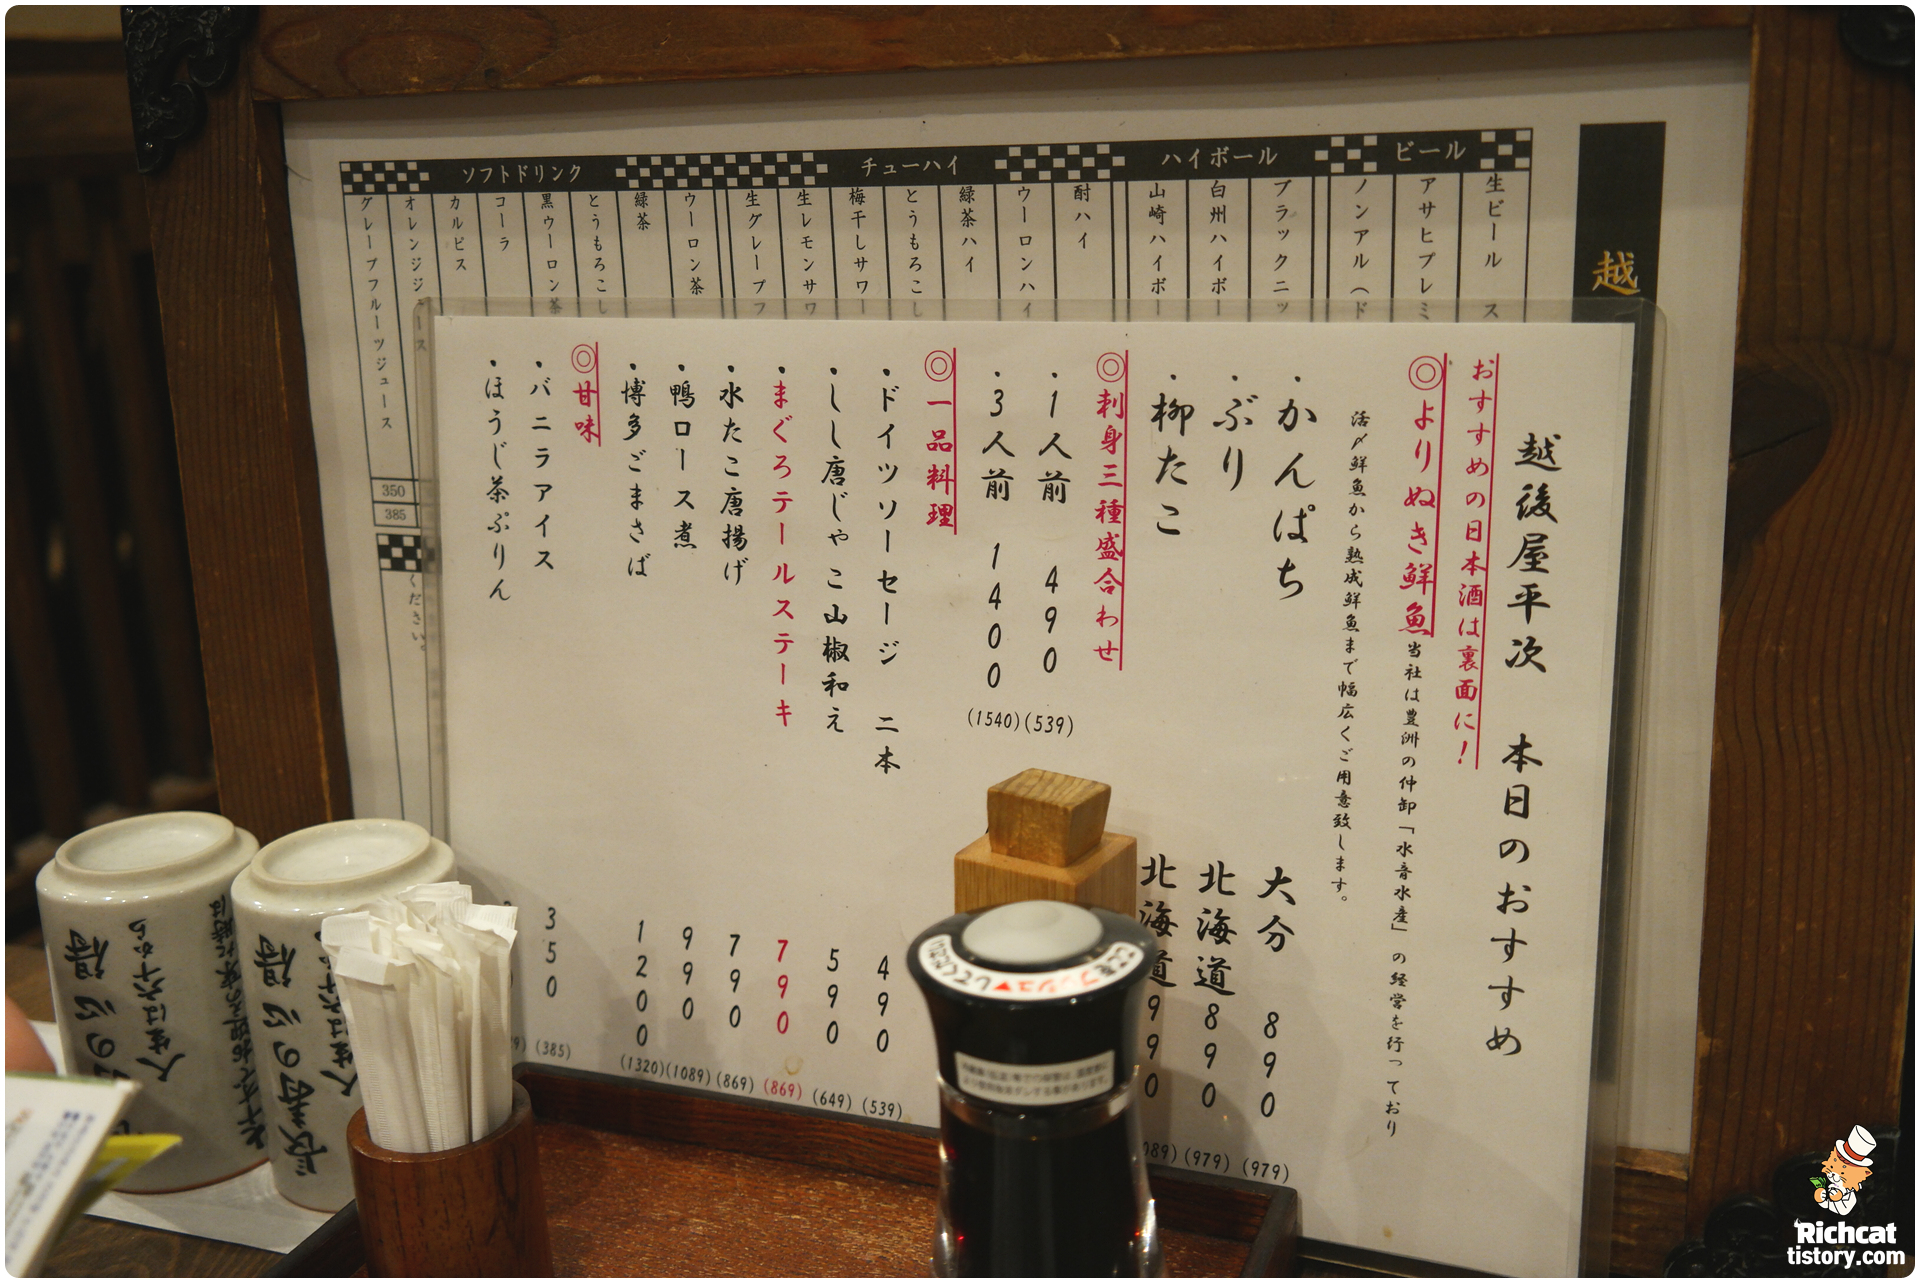 越後屋平次 本日のおすすめ
おすすめの日本酒は裏面に!
◎よりぬき鮮魚 当社は豊洲の仲卸「水音水産」の経営を行っており
活〆鮮魚から熟成鮮魚まで幅広くご用意致します。
・かんぱち 大分 890 (979)
・ぶり 北海道 890 (979)
・柳たこ 北海道 990 089)
◎刺身三種盛合わせ
・1人前 490 (539)
・3人前 1400 (1540)
◎一品料理
・ドイツソーセージ 二本 490 (539)
・しし唐じゃこ山椒和え 590 (649)
・まぐろテールステーキ 790 (869)
・水たこ唐揚げ 790 (869)
・鴨ロース煮 990 (1089)
・博多ごまさば 1200 (1320)
◎甘味
・バニラアイス 350 (385)
・ほうじ茶ぷりん
越
ビール
生ビール ス
アサヒプレミ
ノンアル(ド
ハイボール
ブラックニッ
白州ハイボー
山崎ハイボー
チューハイ
酎ハイ
ウーロンハイ
緑茶ハイ
とうもろこし
梅干しサワー
生レモンサワ
生グレープフ
ソフトドリンク
ウーロン茶
緑茶
とうもろこし
黒ウーロン茶
コーラ
カルピス
オレンジジュース
グレープフルーツジュース
350
385
ください。
ここをプッシュ▼してください
長寿の心得
人生は六十から
Richcat
tistory.com